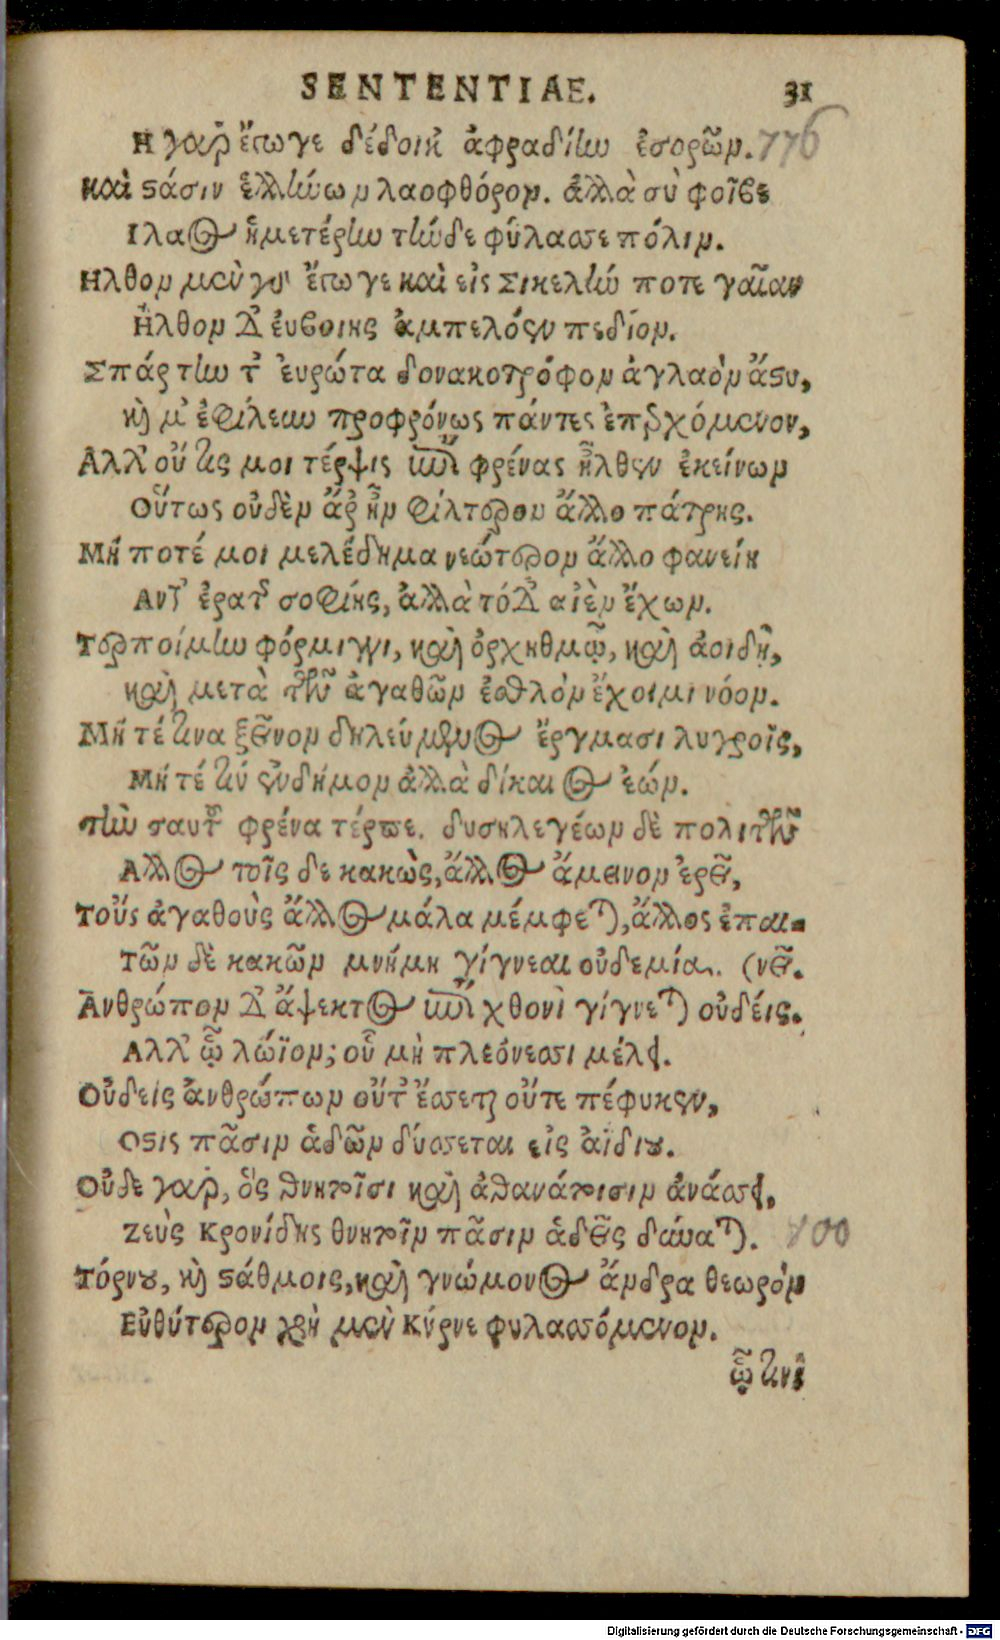 SENTENTIAE. 31
Η γαρ ἔγωγε δέδοικ' ἀφραδίην ἐσορῶν. 776
καὶ στάσιν ἑλλήνων λαοφθόρον. ἀλλὰ σὺ φοῖβε
Ιλαος ἡμετέρην τήνδε φύλασσε πόλιν.
Ηλθον μὲν γὰρ ἔγωγε καὶ εἰς Σικελήν ποτε γαῖαν
Ἦλθον δ' ἐυβοίης ἀμπελόεν πεδίον.
Σπάρτην τ' ἐυρώτα δονακοτρόφον ἀγλαὸν ἄστυ,
καὶ μ' ἐφίλευν προφρόνως πάντες ἐπερχόμενον,
Ἀλλ' οὔτις μοι τέρψις ἐπὶ φρένας ἦλθεν ἐκείνων
Οὕτως οὐδὲν ἄρ' ἦν φίλτερον ἄλλο πάτρης.
Μή ποτέ μοι μελέδημα νεώτερον ἄλλο φανείη
Αντ' ἐρατῆς σοφίης, ἀλλὰ τόδ' αἰὲν ἔχων.
Τερποίμην φόρμιγγι, καὶ ὀρχηθμῷ, καὶ ἀοιδῇ,
καὶ μετὰ τῶν ἀγαθῶν ἐσθλὸν ἔχοιμι νόον.
Μήτέ τινα ξεῖνον δηλεύμενος ἔργμασι λυγροῖς,
Μήτέ τιν' ἐνδήμον ἀλλὰ δίκαιος ἐών.
τὴν σαυτοῦ φρένα τέρπε. δυσηλεγέων δὲ πολιτῶν
Αλλος τοῖς δε κακὼς, ἄλλος ἄμεινον ἐρεῖ,
Τοὺς ἀγαθοὺς ἄλλος μάλα μέμφεται, ἄλλος ἐπαι-
Τῶν δὲ κακῶν μνήμη γίγνεαι οὐδεμία. (νεῖ.
Ἀνθρώπον δ' ἄψεκτος ἐπὶ χθονὶ γίγνεται οὐδείς.
Αλλ' ᾧ λώϊον; οὗ μὴ πλεόνεσσι μέλει.
Οὐδεὶς ἀνθρώπων οὔτ' ἔσσεται οὔτε πέφυκεν,
Οστις πᾶσιν ἁδῶν δύσσεται εἰς ἀίδου.
Οὐδε γαρ, ὃς θνητοῖσι καὶ ἀθανάτοισιν ἀνάσσει,
Ζεὺς Κρονίδης θνητοῖν πᾶσιν ἁδεῖς δύναται. 800
Τόρνου, καὶ στάθμοις, καὶ γνώμονος ἄνδρα θεωρὸν
Εὐθύτερον χρὴ μὲν Κύρνε φυλασσόμενον.
ᾧ τινί
Digitalisierung gefördert durch die Deutsche Forschungsgemeinschaft - DFG